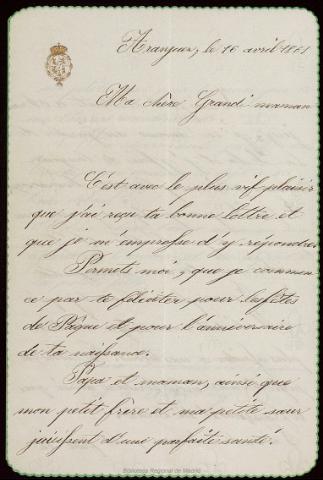 Aranjuez, le 16 avril 1861
Ma chère Grand' maman
C'est avec le plus vif plaisir
que j'ai reçu ta bonne lettre et
que je m'empresse d'y répondre.
Permets moi, que je commen
ce par te féliciter pour les fêtes
de Pâque et pour l'anniversaire
de ta naissance.
Papa et maman, ainsi que
mon petit frère et ma petite sœur
juissent d'une parfaite santé.
Biblioteca Regional de Madrid